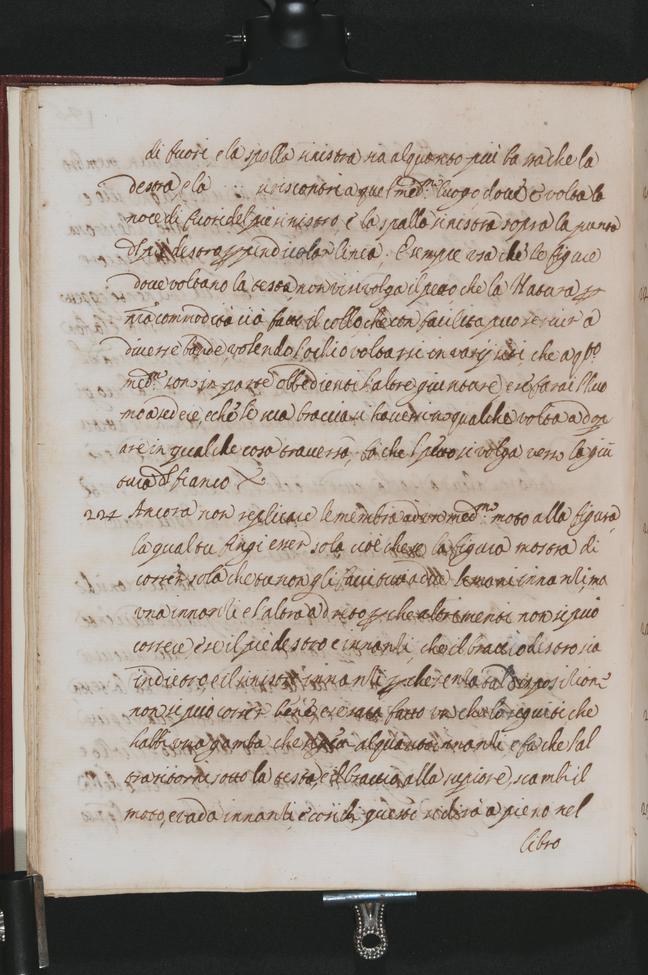 di fuori e la spalla sinistra sia alquanto più bassa che la
destra, e la si riscontri a quel med.º luogo dove è volta la
noce di fuori del piè sinistro, e la spalla sinistra sopra la punta
del piè destro p̱ perpendicolar linea. E sempre usa che le figure
dove voltano la testa non vi si volga il petto che la Natura p̱
nr̃a commodità ci à fatto il collo che con facilità può servir a
diverse bande, volendo l'ochio voltarsi in varij siti, che a q̃sto
med.º sono in parte obbedienti l'altre giunture, e se farai l'huo
mo a sedere, e che le sue braccia si havessino qualche volta a dop
rare in qualche cosa traversa, fà che 'l petto si volga verso la giũ
tura del fianco
224 Ancora non replicare le membra ad un med.mo moto alla figura,
la qual tu fingi esser sola cioè che se la figura mostra di
correr sola che tu non gli facci tutte a due le mani innanti, ma
una innanti e l'altra adrieto p̱ che altrimenti non si può
correre e se il piè destro e innanti, che il braccio destro sia
indietro, e il sinistro innanti p̱che senza tal dispositione
non si può correr bene e se sarà fatto un che lo seguiti che
habbi una gamba che si gitti alquanto innanti e fa che l'al
tra ritorni sotto la testa, e il braccio alla superiore scambi il
moto, e vada innanti, e così di questo si dirà a pieno nel
libro